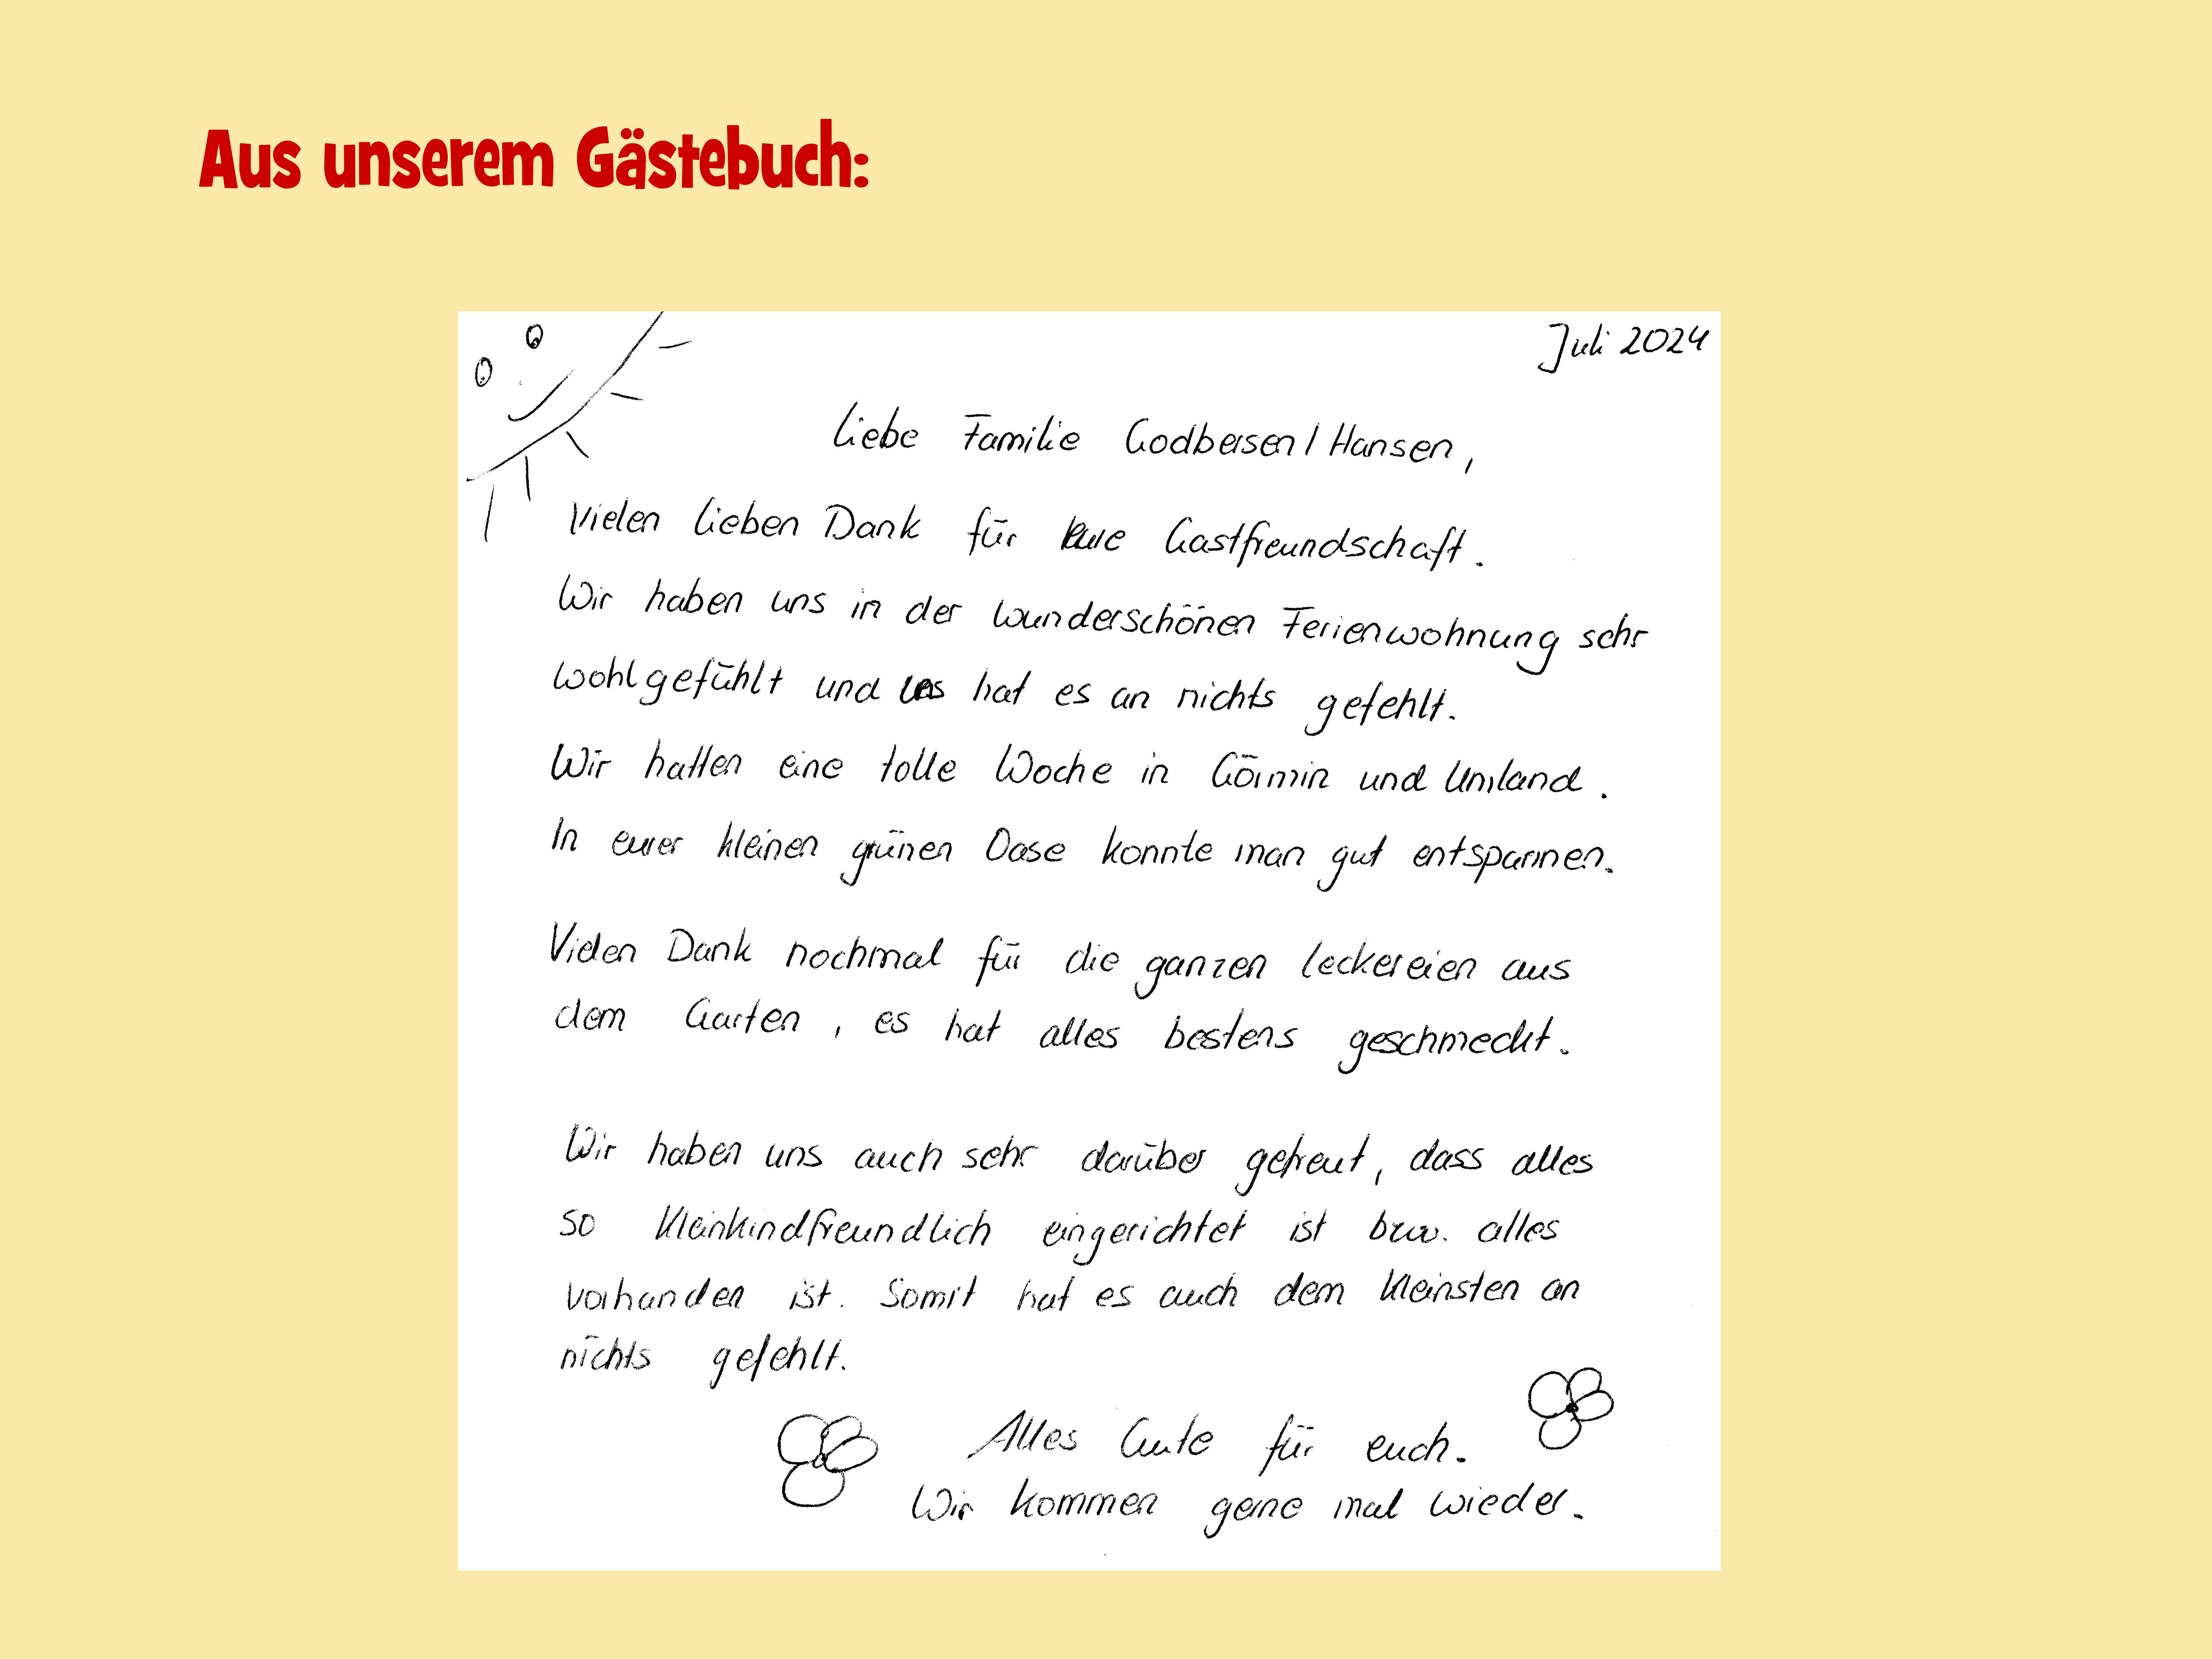 Aus unserem Gästebuch:
Juli 2024
Liebe Familie Godbersen/Hansen,
Vielen lieben Dank für Eure Gastfreundschaft.
Wir haben uns in der wunderschönen Ferienwohnung sehr
wohlgefühlt und uns hat es an nichts gefehlt.
Wir hatten eine tolle Woche in Görmin und Umland.
In eurer kleinen grünen Oase konnte man gut entspannen.
Vielen Dank nochmal für die ganzen Leckereien aus
dem Garten, es hat alles bestens geschmeckt.
Wir haben uns auch sehr darüber gefreut, dass alles
so kleinkindfreundlich eingerichtet ist bzw. alles
vorhanden ist. Somit hat es auch dem Kleinsten an
nichts gefehlt.
Alles Gute für euch.
Wir kommen gerne mal wieder.